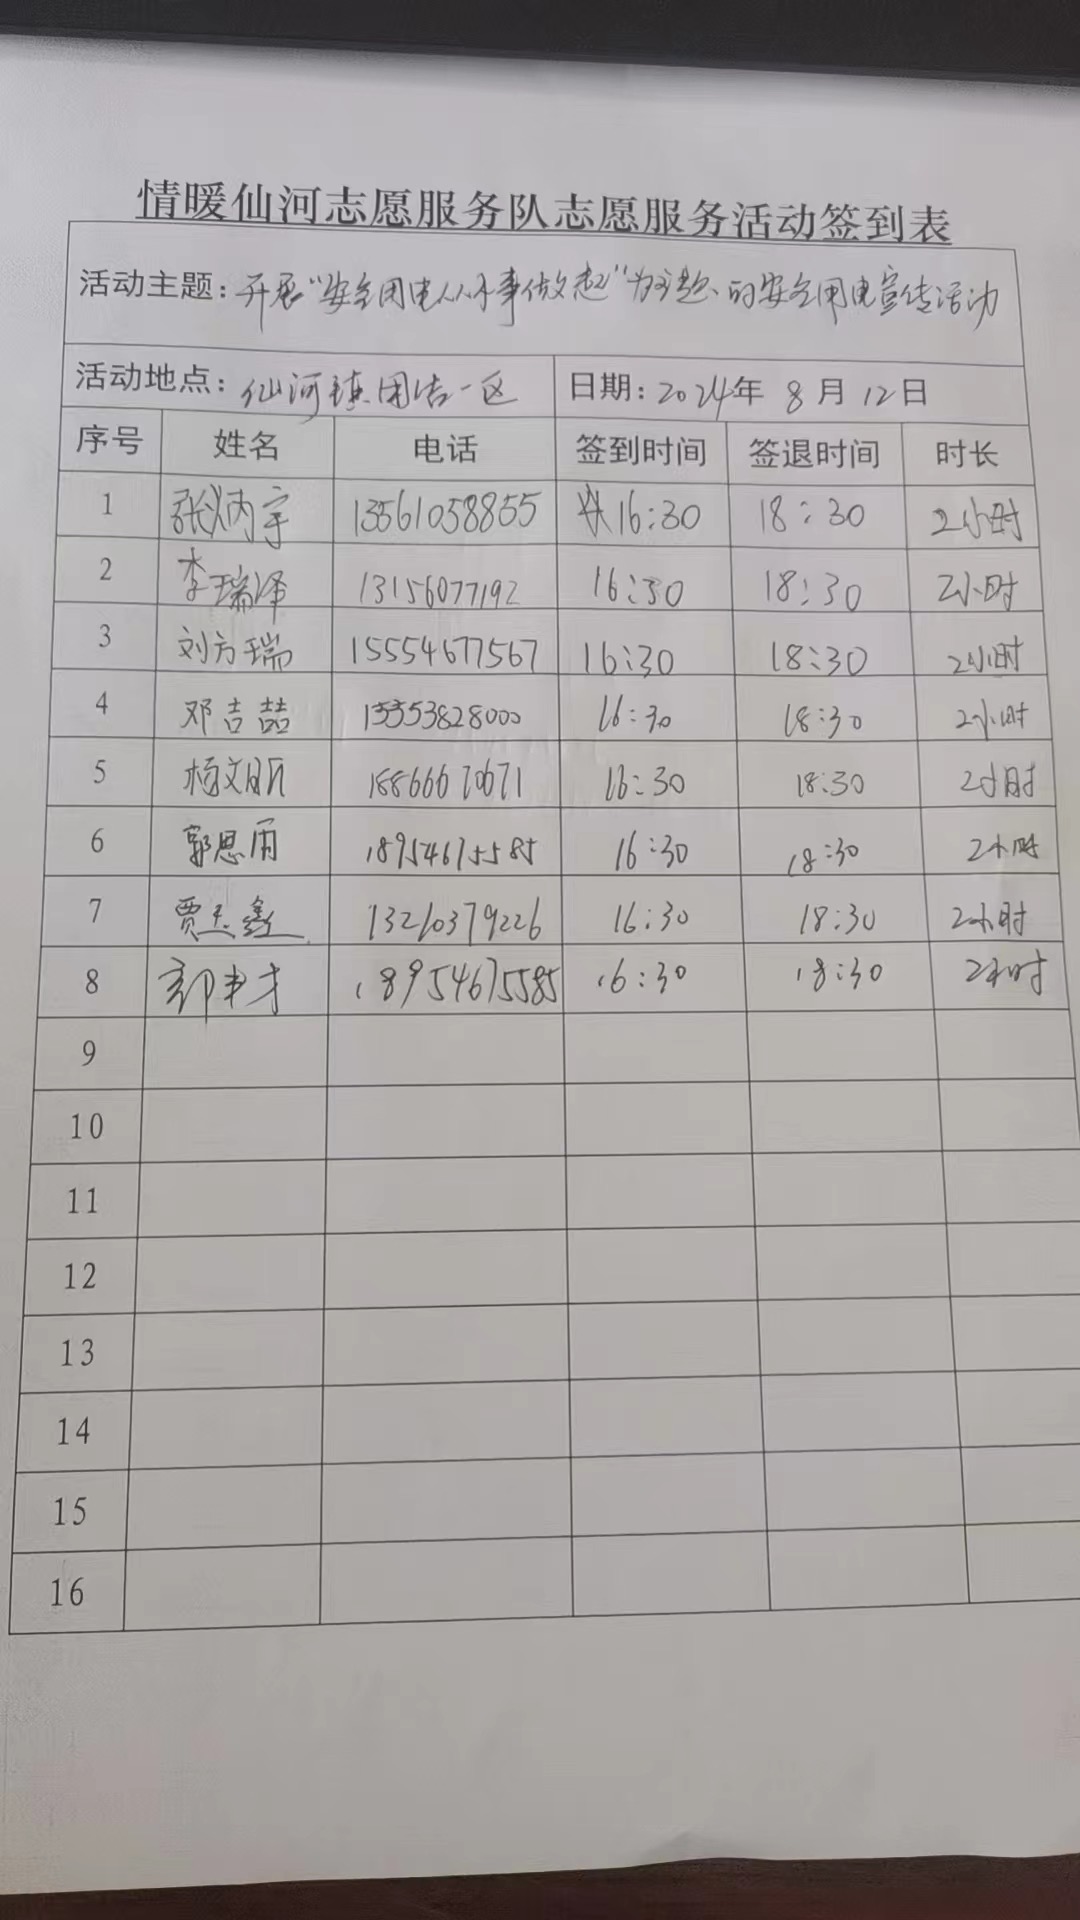 情暖仙河志愿服务队志愿服务活动签到表
活动主题：开展“安全用电从小事做起”为主题的安全用电宣传活动
活动地点：仙河镇团结一区 日期：2024年 8月 12日
序号 姓名 电话 签到时间 签退时间 时长
1 张炳宇 13561058855 16:30 18:30 2小时
2 李瑞泽 13156077192 16:30 18:30 2小时
3 刘方瑞 15554677567 16:30 18:30 2小时
4 邓吉喆 15353828000 16:30 18:30 2小时
5 杨文昕 18866670671 16:30 18:30 2小时
6 郭思雨 18954675585 16:30 18:30 2小时
7 贾鑫 13210379226 16:30 18:30 2小时
8 18954675585 16:30 18:30 2小时
9
10
11
12
13
14
15
16